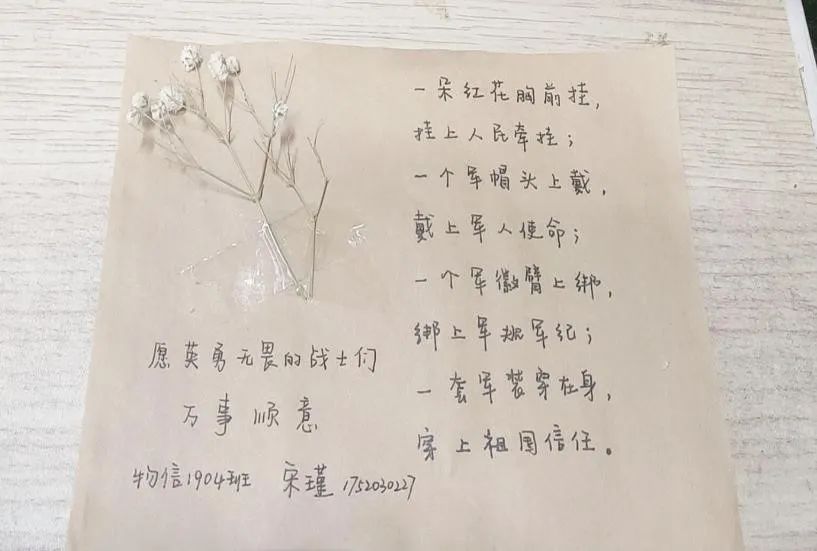 一朵红花胸前挂，
挂上人民牵挂；
一个军帽头上戴，
戴上军人使命；
一个军徽臂上绑，
绑上军规军纪；
一套军装穿在身，
穿上祖国信任。
愿英勇无畏的战士们
万事顺意
物信1904班 宋瑾 1752030227